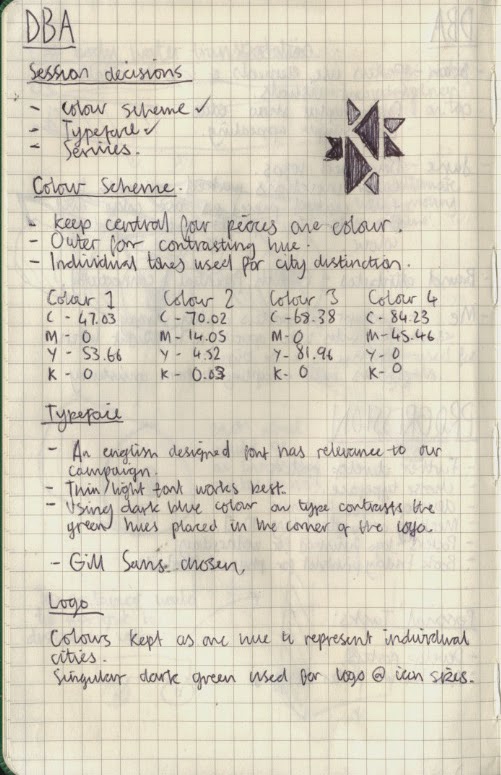 DBA
Session decisions
- colour scheme ✓
- Typeface ✓
- Services.
Colour Scheme.
- keep central four pieces one colour.
- Outer for contrasting hue.
- Individual tones used for city distinction.
Colour 1 Colour 2 Colour 3 Colour 4
C - 47.03 C - 70.02 C - 68.38 C - 84.23
M - 0 M - 14.05 M - 0 M - 45.46
Y - 53.66 Y - 4.52 Y - 81.96 Y - 0
K - 0 K - 0.03 K - 0 K - 0
Typeface
- An english designed font has relevance to our
campaign.
- Thin/light font works best.
- Using dark blue colour on type contrasts the
green hues placed in the corner of the logo.
- Gill Sans chosen.
Logo
Colours kept as one hue to represent individual
cities.
Singular dark green used for logo @ icon sizes.